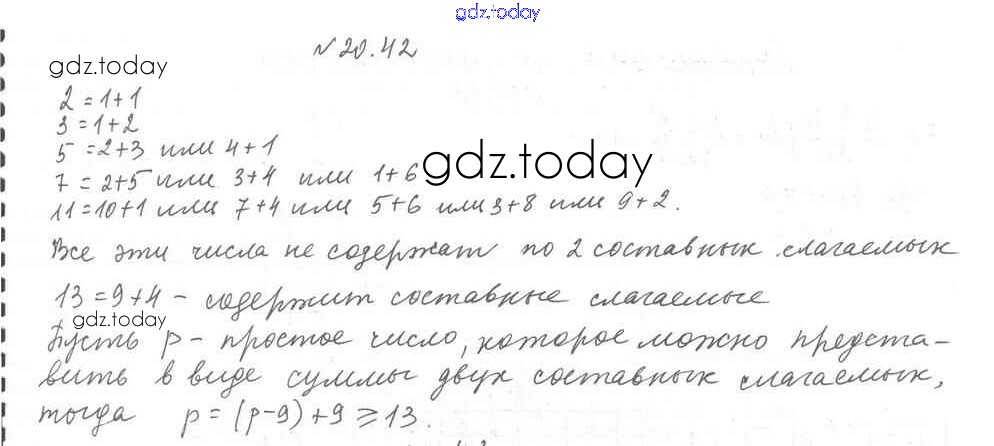 gdz.today
№20.42
gdz.today
2 = 1+1
3 = 1+2
5 = 2+3 или 4+1
7 = 2+5 или 3+4 или 1+6
gdz.today
11 = 10+1 или 7+4 или 5+6 или 3+8 или 9+2.
Все эти числа не содержат по 2 составных слагаемых
13 = 9+4 - содержит составные слагаемые
gdz.today
Пусть p - простое число, которое можно предста-
вить в виде суммы двух составных слагаемых,
тогда p = (p-9)+9 ⩾ 13.